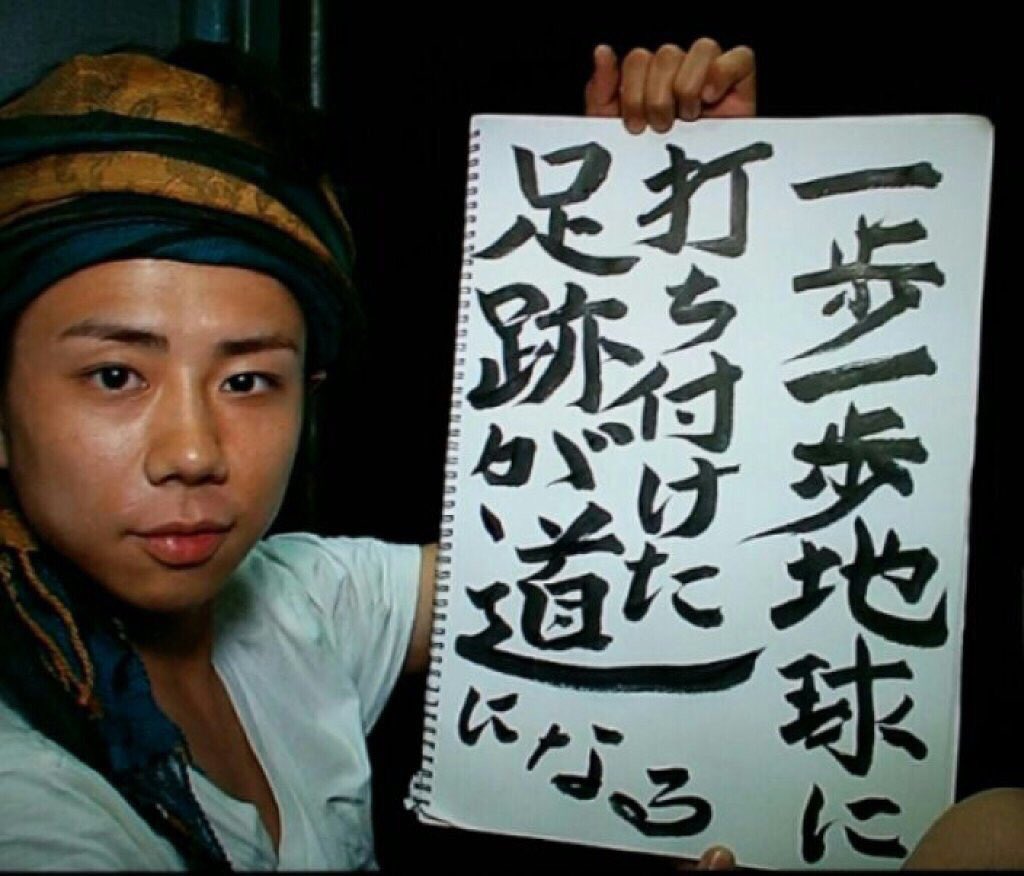 一歩一歩地球に
打ち付けた
足跡が、道になる